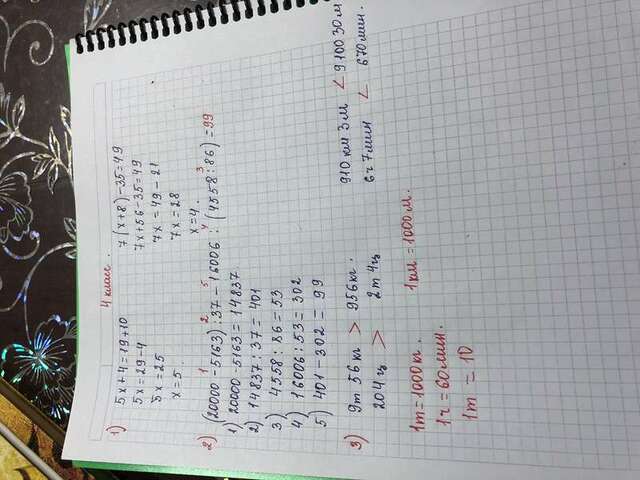 4 класс.
1) 5x + 4 = 19 + 10 7(x+8) - 35 = 49
5x = 29 - 4 7x + 56 - 35 = 49
5x = 25 7x = 49 - 21
x = 5. 7x = 28
x = 4.
2) (20000 - 5163) : 37 - 16006 : (4558 : 86) = 99
1 2 5 4 3
1) 20000 - 5163 = 14837
2) 14837 : 37 = 401
3) 4558 : 86 = 53
4) 16006 : 53 = 302
5) 401 - 302 = 99
3) 9т 56 кг > 956 кг. 910 км 3м < 910030м
204 ц > 2т 4ц 6ч 7мин < 670мин.
1т = 1000 кг. 1км = 1000м.
1ч = 60 мин.
1т = 10